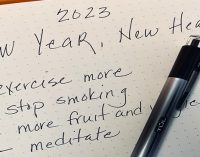 2023
w Year, New Hea
exercise more
stop smoking
more fruit and
meditate